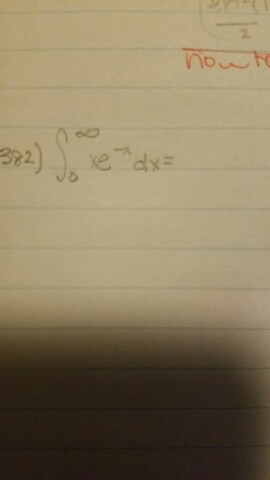 2
now
382) ∫₀^∞ xe^-x dx=